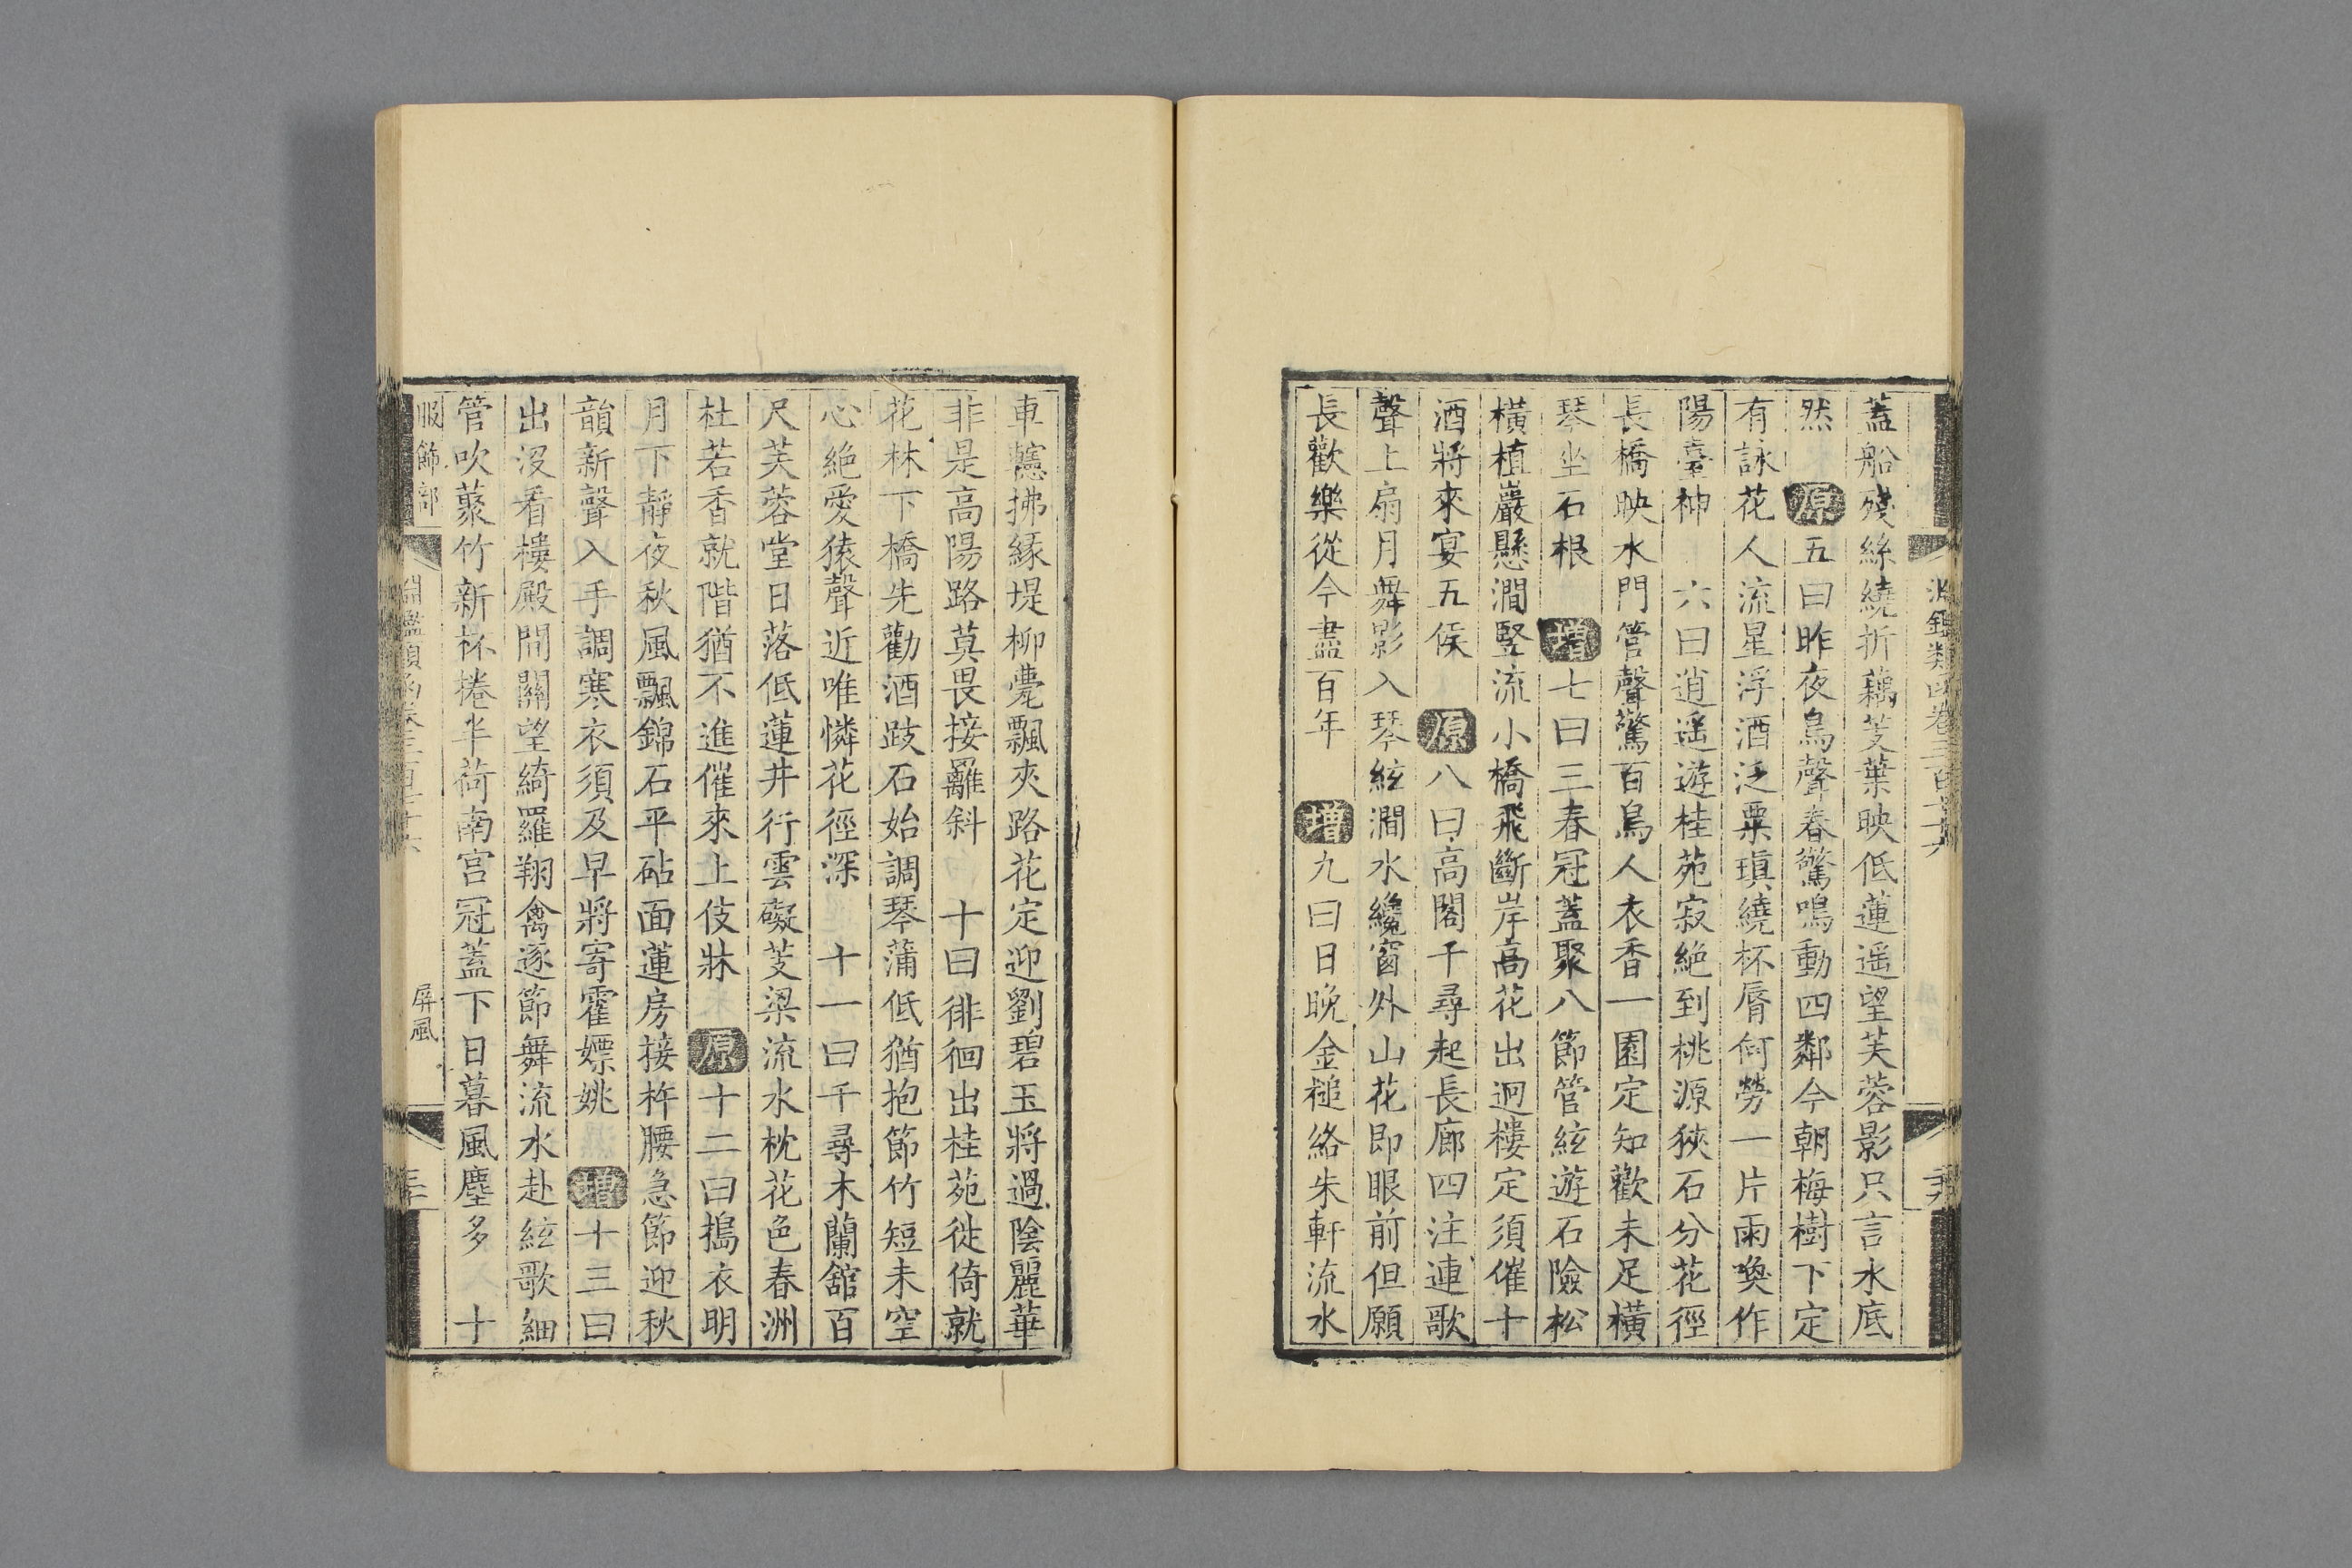 蓋船殘絲繞折藕芰葉映低蓮遥望芙蓉影只言水底
然 原五曰昨夜鳥聲春驚鳴動四鄰今朝梅樹下定
有詠花人流星浮酒泛粟瑱繞杯脣何勞一片雨喚作
陽臺神 六曰逍遥遊桂苑寂絶到桃源狹石分花徑
長橋映水門管聲驚百鳥人衣香一園定知歡未足橫
琴坐石根 增七曰三春冠蓋聚八節管絃遊石險松
橫植巖懸澗竪流小橋飛斷岸高花出迥樓定須催十
酒將來宴五侯 原八曰高閣千尋起長廊四注連歌
聲上扇月舞影入琴絃澗水纔窗外山花即眼前但願
長歡樂從今盡百年 增九曰日晚金槌絡朱軒流水
車轊拂緣堤柳甍飄夾路花定迎劉碧玉將過陰麗華
非是高陽路莫畏接䍦斜 十曰徘徊出桂苑徙倚就
花林下橋先勸酒跂石始調琴蒲低猶抱節竹短未空
心絶愛猿聲近唯憐花徑深 十一曰千尋木蘭舘百
尺芙蓉堂日落低蓮井行雲礙芰梁流水枕花色春洲
杜若香就階猶不進催來上伎牀 原十二曰搗衣明
月下靜夜秋風飄錦石平砧面蓮房接杵腰急節迎秋
韻新聲入手調寒衣須及早將寄霍嫖姚 增十三曰
出沒看樓殿間關望綺羅翔禽逐節舞流水赴絃歌細
管吹藂竹新杯捲半荷南宫冠蓋下日暮風塵多 十
服飾部 淵鑑類函卷三百七十六 屏風